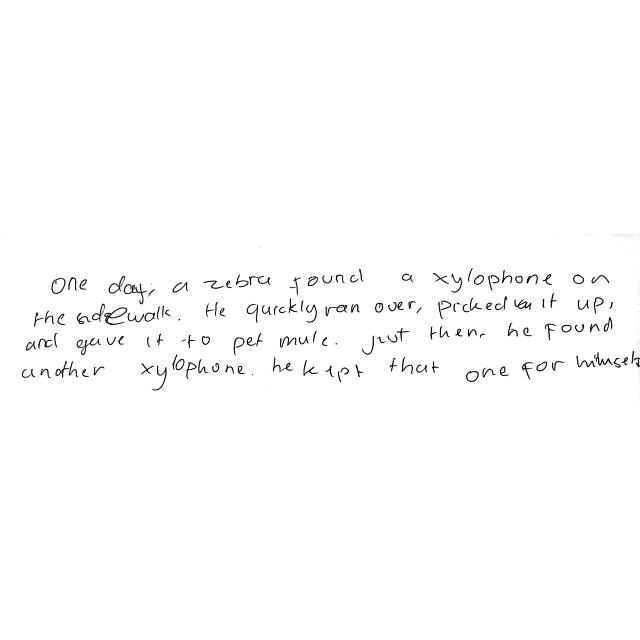 One day, a zebra found a xylophone on
the sidewalk. He quickly ran over, picked it up,
and gave it to pet mule. just then, he found
another xylophone. he kept that one for himself